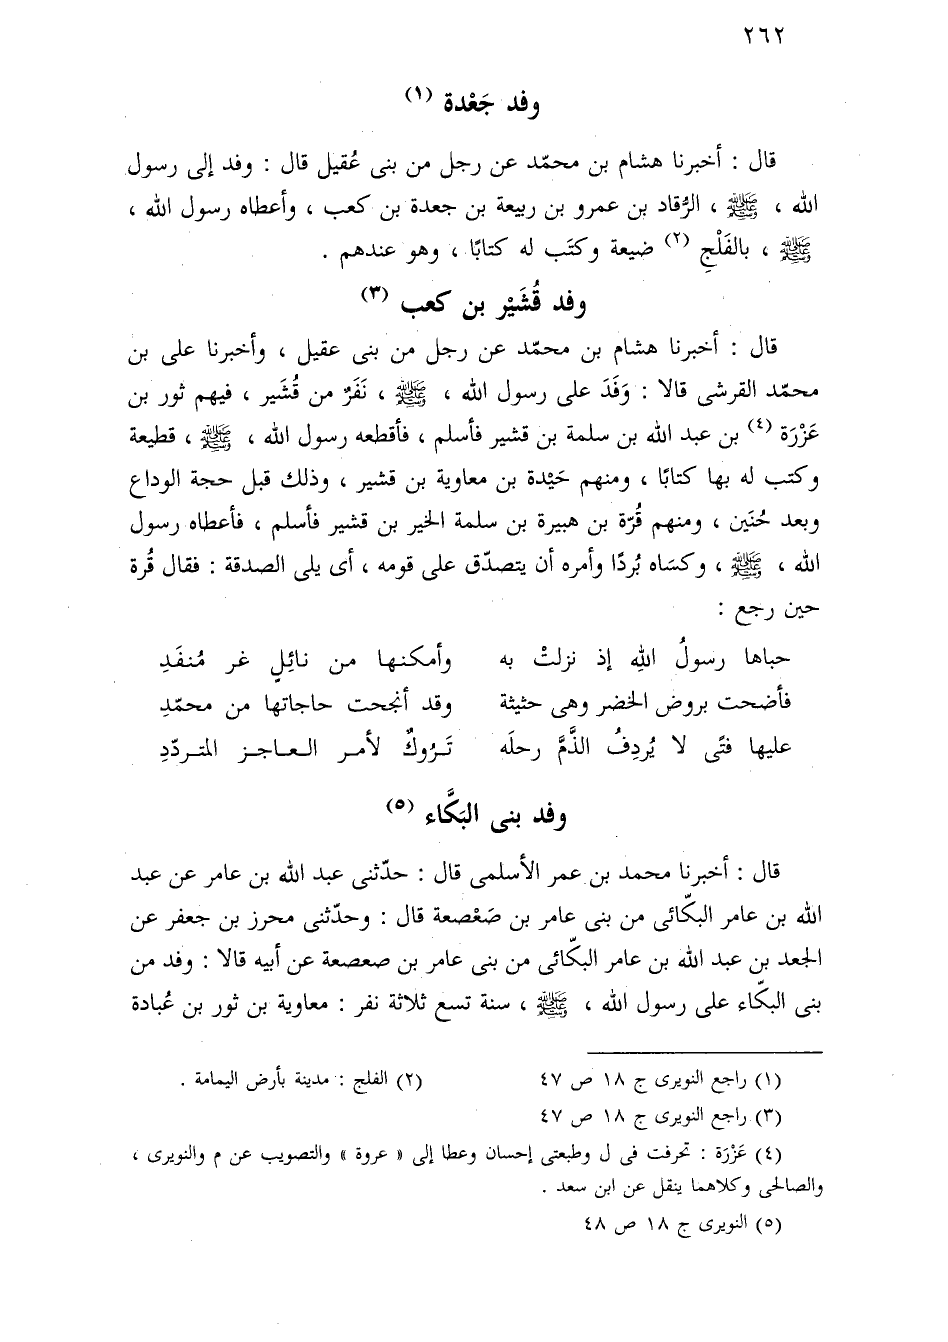 ٢٦٢
وفد جَعْدة (١)
قال : أخبرنا هشام بن محمّد عن رجل من بنى عُقيل قال : وفد إلى رسول
الله ، ﷺ ، الرُّقاد بن عمرو بن ربيعة بن جعدة بن كعب ، وأعطاه رسول الله ،
ﷺ ، بالفَلْجِ (٢) ضيعة وكتَب له كتابًا ، وهو عندهم .
وفد قُشَيْر بن كعب (٣)
قال : أخبرنا هشام بن محمّد عن رجل من بنى عقيل ، وأخبرنا على بن
محمّد القرشى قالا : وَفَدَ على رسول الله ، ﷺ ، نَفَرٌ من قُشَير ، فيهم ثور بن
عَزْرَة (٤) بن عبد الله بن سلمة بن قشير فأسلم ، فأقطعه رسول الله ، ﷺ ، قطيعة
وكتب له بها كتابًا ، ومنهم حَيْدة بن معاوية بن قشير ، وذلك قبل حجة الوداع
وبعد حُنَين ، ومنهم قُرّة بن هبيرة بن سلمة الخير بن قشير فأسلم ، فأعطاه رسول
الله ، ﷺ ، وكسَاه بُردًا وأمره أن يتصدّق على قومه ، أى يلى الصدقة : فقال قُرة
حين رجع :
حباها رسولُ اللهِ إذ نزلتْ به وأمكنها من نائِلٍ غر مُنفَدِ
فأضحت بروض الخضر وهى حثيثة وقد أنجحت حاجاتها من محمّدِ
عليها فتًى لا يُردِفُ الذَّمَّ رحلَه تَرُوكٌ لأمر العاجز المتردّدِ
وفد بنى البَكَّاء (٥)
قال : أخبرنا محمد بن عمر الأسلمى قال : حدّثنى عبد الله بن عامر عن عبد
الله بن عامر البكّائى من بنى عامر بن صَعْصعة قال : وحدّثنى محرز بن جعفر عن
الجعد بن عبد الله بن عامر البكّائى من بنى عامر بن صعصعة عن أبيه قالا : وفد من
بنى البكّاء على رسول الله ، ﷺ ، سنة تسع ثلاثة نفر : معاوية بن ثور بن عُبادة
(١) راجع النويرى ج ١٨ ص ٤٧ (٢) الفلج : مدينة بأرض اليمامة .
(٣) راجع النويرى ج ١٨ ص ٤٧
(٤) عَزْرَة : تحرفت فى ل وطبعتى إحسان وعطا إلى « عروة » والتصويب عن م والنويرى ،
والصالحى وكلاهما ينقل عن ابن سعد .
(٥) النويرى ج ١٨ ص ٤٨